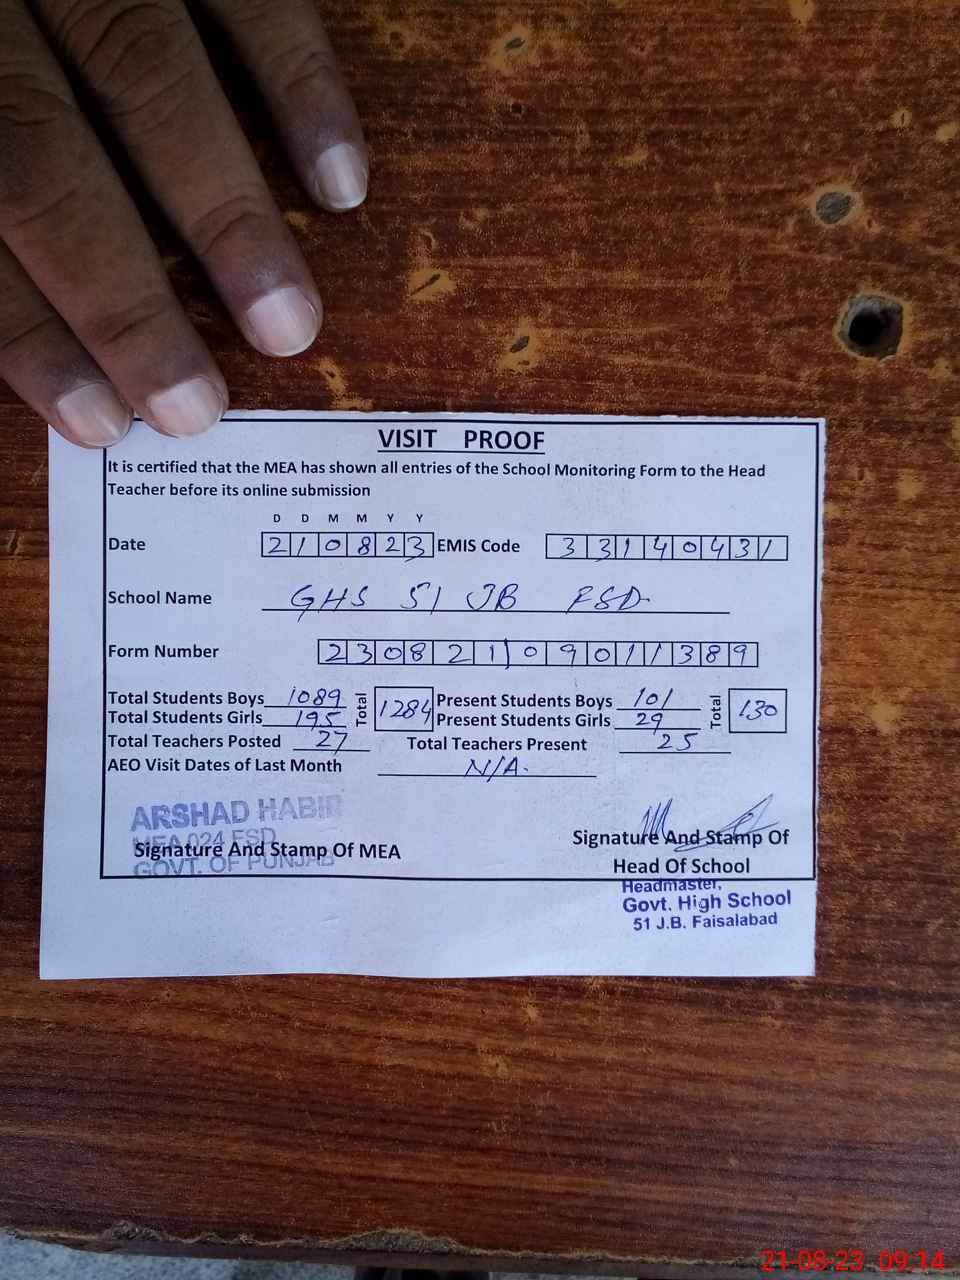 VISIT PROOF
It is certified that the MEA has shown all entries of the School Monitoring Form to the Head
Teacher before its online submission
D D M M Y Y
Date 210823 EMIS Code 33140431
School Name GHS 51 JB FSD
Form Number 23082109011389
Total Students Boys 1089 Total 1284 Present Students Boys 101 Total 130
Total Students Girls 195 Present Students Girls 29
Total Teachers Posted 27 Total Teachers Present 25
AEO Visit Dates of Last Month N/A.
ARSHAD HABIB
MEA 024 FSD
GOVT. OF PUNJAB
Signature And Stamp Of MEA
Signature And Stamp Of
Head Of School
Headmaster,
Govt. High School
51 J.B. Faisalabad
21-08-23 09:14